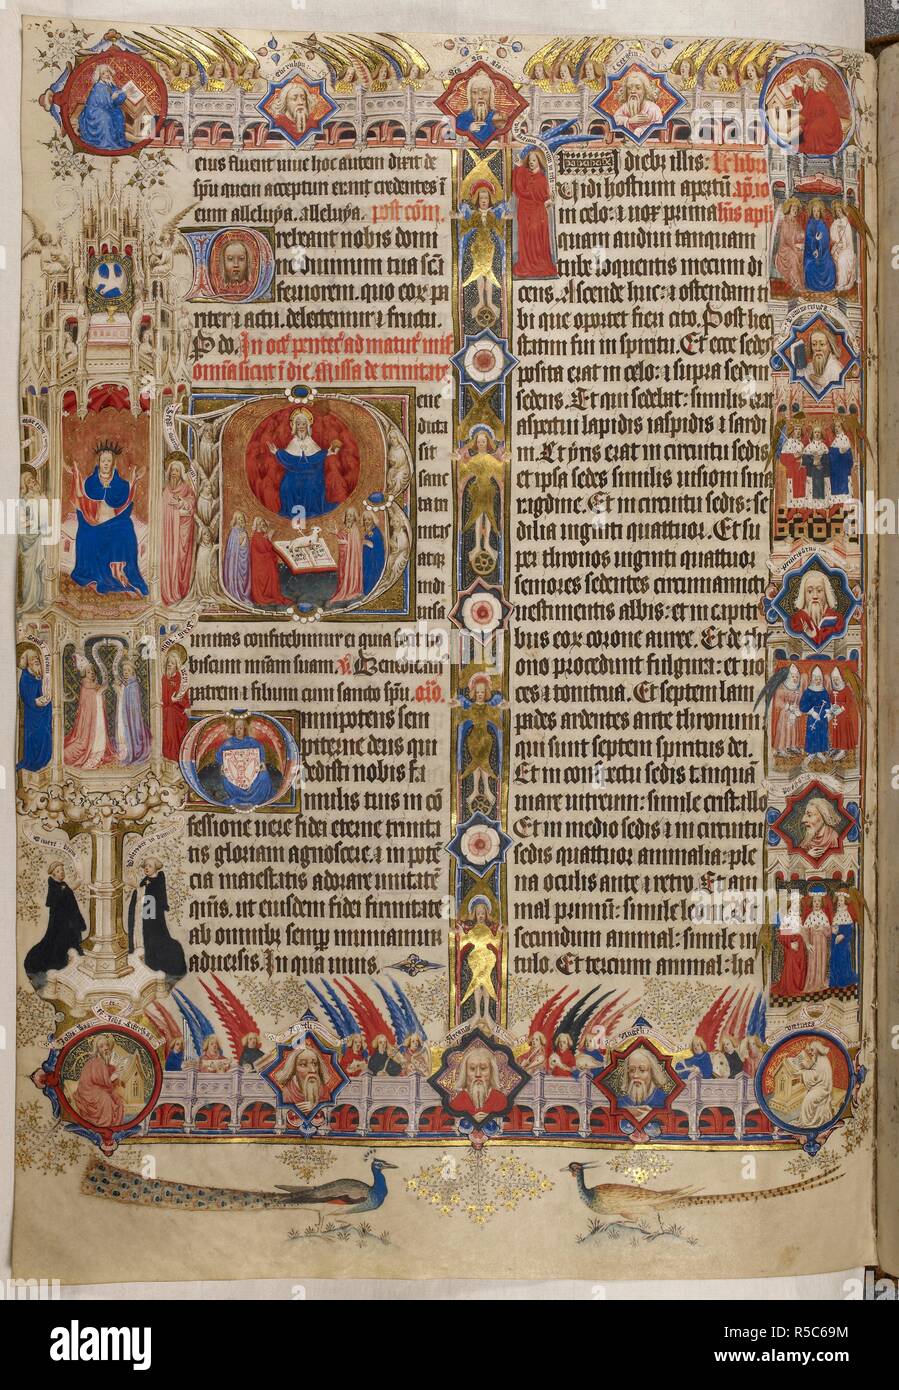 276
eius fluent viue hoc autem dixit de
spu quem accepturi erant credentes i
eum alleluya. alleluya. post com.
Preſteant nobis domi
ne diuinum tua sca
feruorem. quo eor pa
riter & actu. delectemur & fructu.
P do. In oct. pentec. ad matut. mis
omia sicut i die. Missa de trinitate
Bene
dicta
sit
sanc
ta tri
nitas
atqz
indi
uisa
unitas confitebimur ei quia fecit no
biscum miam suam. v. Benedicam
patrem & filium cum sancto spu. oro.
Omnipotens sem
piterne deus qui
dedisti nobis fa
mulis tuis in co
fessione uere fidei eterne trinita
tis gloriam agnoscere. & in poten
cia maiestatis adorare unitate
qus. ut eiusdem fidei firmitate
ab omnibz semp muniamur
aduersis. In qua unus.
In diebz illis: Lc libri
Vidi hostium apertu apo. io
in celo: & uox prima hiis apli
quam audiui tanquam
tube loquentis mecum di
cens. Ascende huc: & ostendam ti
bi que oportet fieri cito. Post hec
statim fui in spiritu. Et ecce sedes
posita erat in celo: & supra sedem
sedens. Et qui sedebat: similis erat
aspectui lapidis iaspidis & sardi
ni. Et yris erat in circuitu sedis
et ipsa sedes similis uisioni sma
rigdine. Et in circuitu sedis: se
dilia uiginti quattuor. Et su
per thronos uiginti quattuor
seniores sedentes circumamicti
uestimentis albis: et in capiti
bus eor corone auree. Et de thr
ono procedunt fulgura: et uo
ces & tonitrua. Et septem lam
pades ardentes ante thronum:
qui sunt septem spiritus dei.
Et in conspectu sedis tanqua
mare uitreum: simile cristallo
Et in medio sedis & in circuitu
sedis quattuor animalia: ple
na oculis ante & retro. Et ani
mal primu: simile leoni. Et
secundum animal: simile ui
tulo. Et tercium animal: ha
alamy
Image ID: R5C69M
www.alamy.com